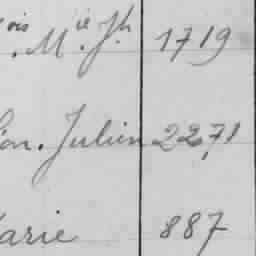 ois M. ie Jh 1719
on. Julien 2271
arie 887